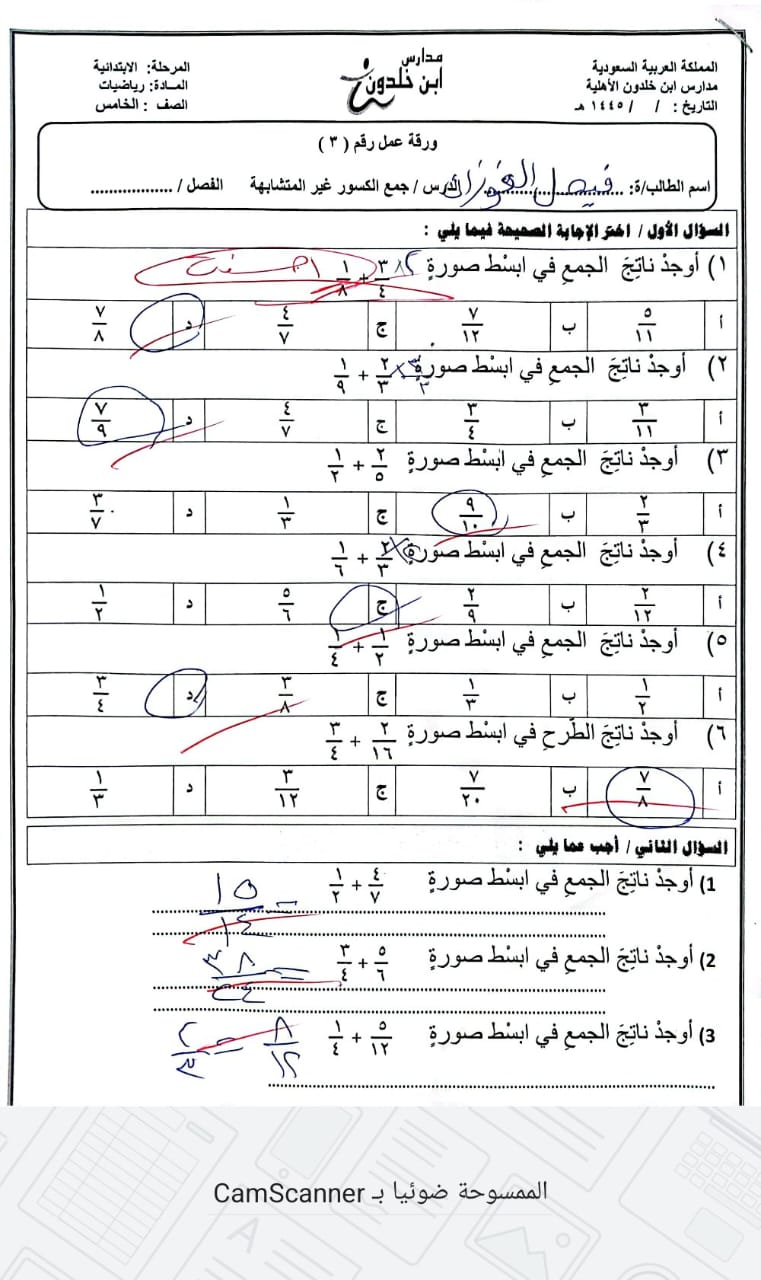 المملكة العربية السعودية
مدارس ابن خلدون الأهلية
التاريخ : / / ١٤٤٥ هـ
مدارس
ابن خلدون
المرحلة: الابتدائية
المــادة: رياضيات
الصف : الخامس
ورقة عمل رقم ( ٣ )
اسم الطالب/ة: فيصل الفوزان الدرس / جمع الكسور غير المتشابهة الفصل / ..................
السؤال الأول / اختر الإجابة الصحيحة فيما يلي :
١) أوجدْ ناتِجَ الجمعِ في ابسْط صورةٍ ٣/٤ + ١/٨ احسنت
أ ٥/١١ ب ٧/١٢ ج ٤/٧ د ٧/٨
٢) أوجدْ ناتِجَ الجمعِ في ابسْط صورةٍ ٢/٣ + ١/٩
أ ٣/١١ ب ٣/٤ ج ٤/٧ د ٧/٩
٣) أوجدْ ناتِجَ الجمعِ في ابسْط صورةٍ ٢/٥ + ١/٢
أ ٢/٣ ب ٩/١٠ ج ١/٣ د ٣/٧
٤) أوجدْ ناتِجَ الجمعِ في ابسْط صورةٍ ٢/٣ + ١/٦
أ ٢/١٢ ب ٢/٩ ج ٥/٦ د ١/٢
٥) أوجدْ ناتِجَ الجمعِ في ابسْط صورةٍ ١/٢ + ١/٤
أ ١/٢ ب ١/٣ ج ٣/٨ د ٣/٤
٦) أوجدْ ناتِجَ الطّرحِ في ابسْط صورةٍ ٢/١٦ + ٣/٤
أ ٧/٨ ب ٧/٢٠ ج ٣/١٢ د ١/٣
السؤال الثاني / أجب عما يلي :
1) أوجدْ ناتِجَ الجمعِ في ابسْط صورةٍ ٤/٧ + ١/٢
= ١٥/١٤
2) أوجدْ ناتِجَ الجمعِ في ابسْط صورةٍ ٥/٦ + ٣/٤
= ٣٨/٢٤
3) أوجدْ ناتِجَ الجمعِ في ابسْط صورةٍ ٥/١٢ + ١/٤ ٨/١٢ = ٢/٣
الممسوحة ضوئيا بـ CamScanner